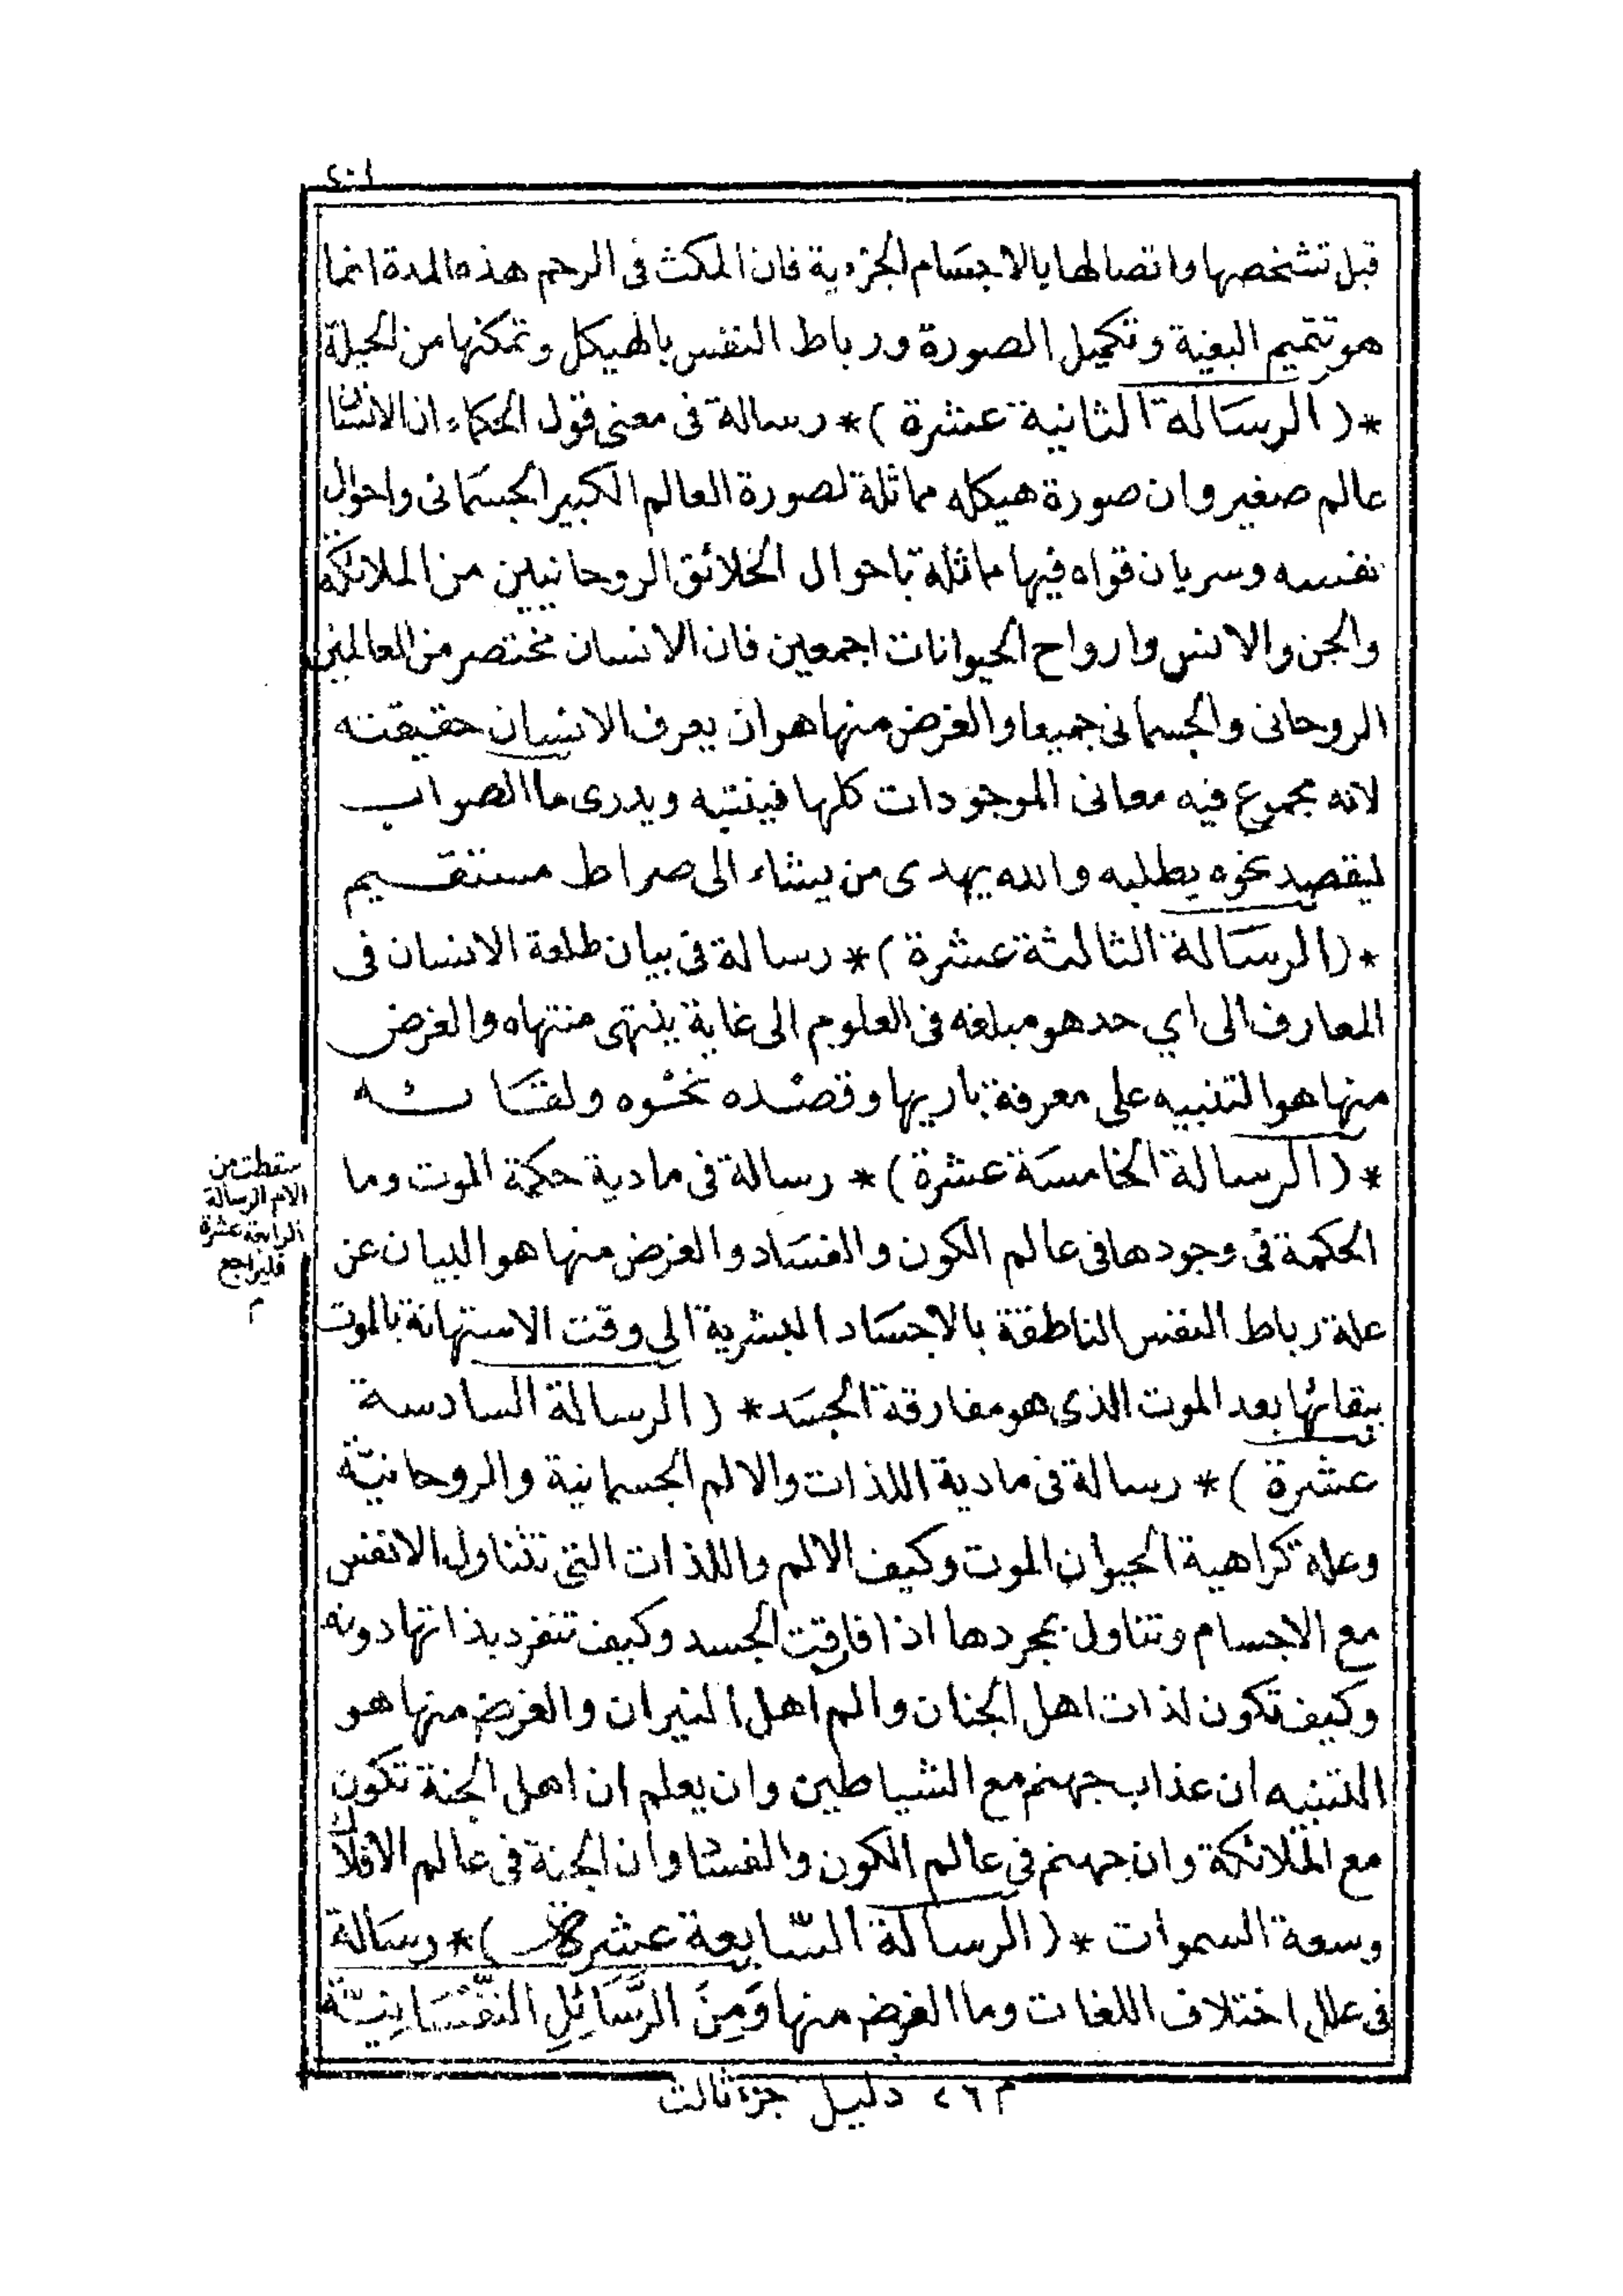 ٤٠١
قبل تشخصها واتصالها بالاجسام الجزءية فان المكث فى الرحم هذه المدة انما
هو تتميم البغية وتكميل الصورة ورباط النفس بالهيكل وتمكنها من الجبلة
*( الرسالة الثانية عشرة )* رسالة فى معنى قول الحكماء ان الانسان
عالم صغير وان صورة هيكله مماثلة لصورة العالم الكبير الجسمانى واحوال
نفسه وسريان قواه فيها مماثلة باحوال الخلائق الروحانيين من الملائكة
والجن والانس وارواح الحيوانات اجمعين فان الانسان مختصر من العالمين
الروحانى والجسمانى جميعا والغرض منها هو ان يعرف الانسان حقيقته
لانه مجموع فيه معانى الموجودات كلها فينتبه ويدرى ما الصواب
ليقصد نحوه يطلبه والله يهدى من يشاء الى صراط مستقيم
*( الرسالة الثالثة عشرة )* رسالة فى بيان طلعة الانسان فى
المعارف الى اي حد هو مبلغه فى العلوم الى غاية ينتهى منتهاه والغرض
منها هو التنبيه على معرفة باريها وقصده نحوه ولقائه
*( الرسالة الخامسة عشرة )* رسالة فى مادية حكمة الموت وما
الحكمة فى وجودها فى عالم الكون والفساد والغرض منها هو البيان عن
علة رباط النفس الناطقة بالاجساد البشرية الى وقت الاستهانة بالموت
ببقائها بعد الموت الذى هو مفارقة الجسد * ( الرسالة السادسة
عشرة )* رسالة فى مادية اللذات والالم الجسمانية والروحانية
وعلة كراهية الحيوان الموت وكيف الالم واللذات التى تتناول الانفس
مع الاجسام وتتناول بمجردها اذا فارقت الجسد وكيف تنفرد بذاتها دونه
وكيف تكون لذات اهل الجنان والم اهل النيران والغرض منها هو
التنبيه ان عذاب جهنم مع الشياطين وان يعلم ان اهل الجنة تكون
مع الملائكة وان جهنم فى عالم الكون والفساد وان الجنة فى عالم الافلاك
وسعة السموات *( الرسالة السّابعة عشرة )* رسالة
فى علل اختلاف اللغات وما الغرض منها وَمِنَ الرَّسَائِلِ النَّفْسَانِيَّة
سقطت من
الام الرسالة
الرابعة عشرة
فليراجع
م
م ٢٦ دليل جزء ثالث